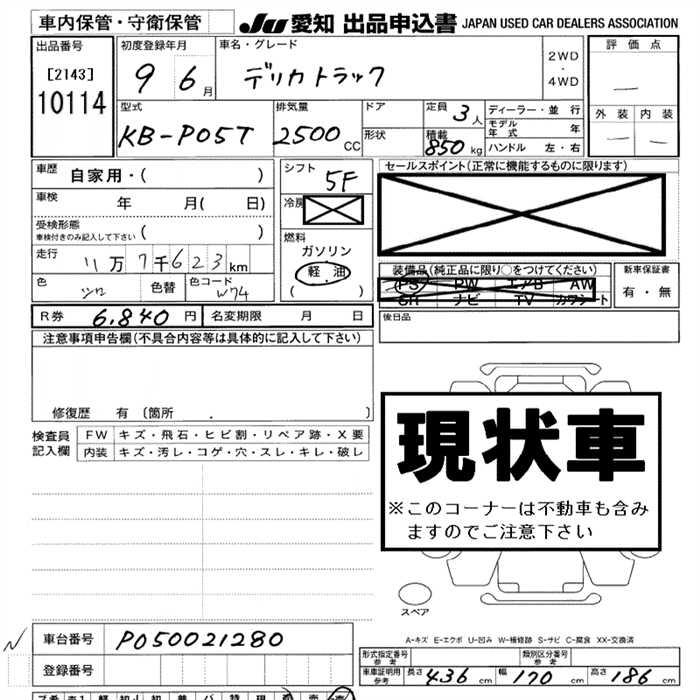 車内保管・守衛保管
JU 愛知 出品申込書 JAPAN USED CAR DEALERS ASSOCIATION
出品番号
[2143]
10114
初度登録年月
9 6月
車名・グレード
デリカトラック
2WD
・
4WD
評価点
—
外装 内装
— —
型式
KB-P05T
排気量
2500 CC
ドア
形状
定員 3人
積載 850 kg
ディーラー・並行
モデル年式 年
ハンドル 左・右
車歴 自家用・( )
車検 年 月( 日)
受検形態
車検付きのみ記入して下さい ( )
走行
11万7千623km
色 色替 色コード
W74
シフト
5F
冷房
燃料
ガソリン
軽油
( )
セールスポイント(正常に機能するものに限ります)
装備品(純正品に限り○をつけてください)
PS PW エアB AW
SR ナビ TV カワシート
新車保証書
有・無
R券 6,840円 名変期限 月 日
後日品
注意事項申告欄(不具合内容等は具体的に記入して下さい)
修復歴 有 〔箇所 . 〕
検査員
記入欄
FW キズ・飛石・ヒビ割・リペア跡・X要
内装 キズ・汚レ・コゲ・穴・スレ・キレ・破レ
現状車
※このコーナーは不動車も含み
ますのでご注意下さい
スペア
A-キズ E-エクボ U-凹み W-補修跡 S-サビ C-腐食 XX-交換済
車台番号 P050021280
登録番号
形式指定番号
参考
類別区分番号
参考
車庫証明用
参考
長さ 436 cm 幅 170 cm 高さ 186 cm